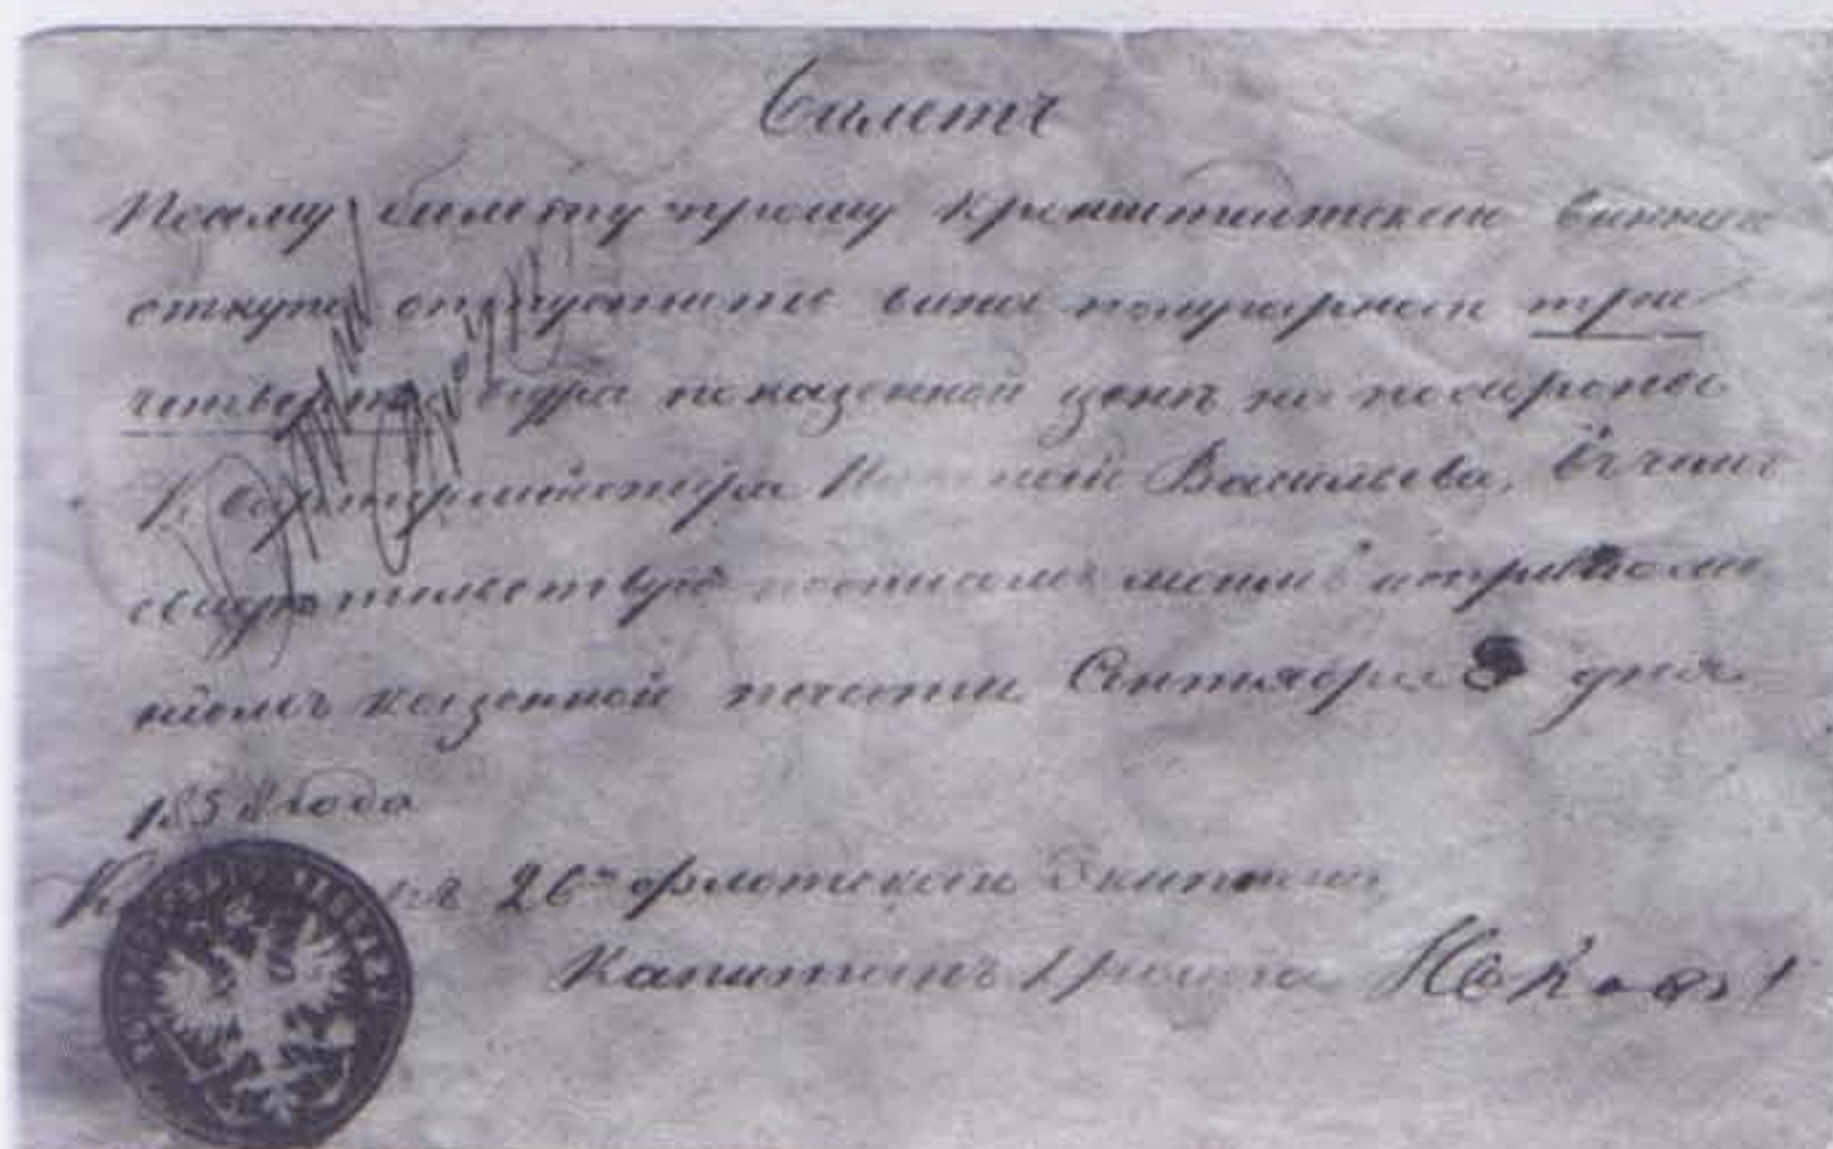 Билетъ
По сему билету прошу Кронштадтской винной
откупъ отпустить вина полугарнаго три
четверти ведра по казенной цене на похороны
Квартирмейстера Васильева. Въ чемъ
свидетельствую подписомъ моимъ и приложе
ніемъ казенной печати Сентября 8 дня
1858 года
26го флотскаго Экипажа
Капитанъ 1 ранга